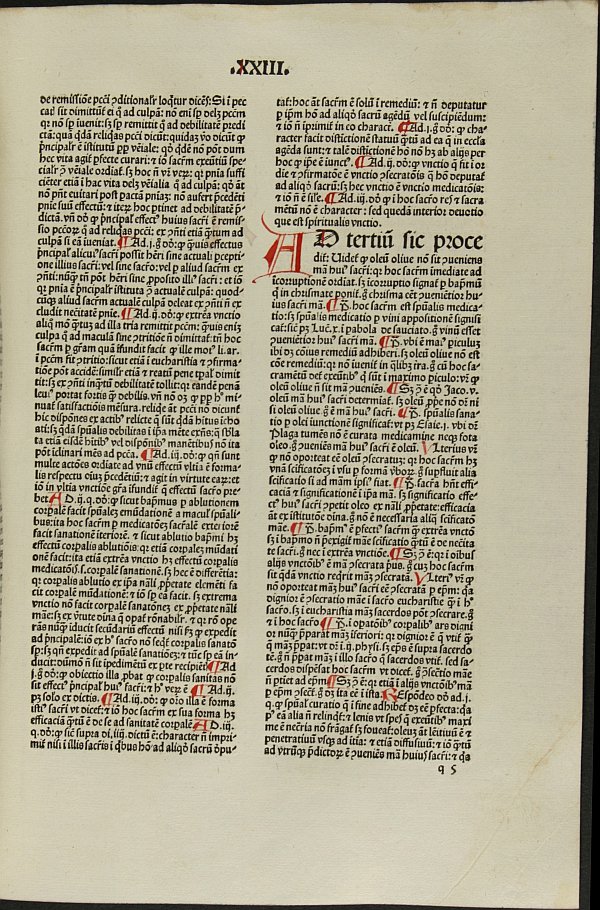 .XXIII.
de remissiõe pcc̃i ꝯditionalr̃ loq̃tur dicẽs: Si ĩ pec
catis sit dimittũt̃ ei q̃ ad culpã: nõ eni sp delʒ pccm̃
qr nõ sp iuenit: sʒ sp remittit q̃ ad debilitatẽ predi
ctã: quã q̃dã reliq̃as pcc̃i dicũt: quidaʒ vo dicũt ꝙ
prĩcipalr̃ ẽ istitutũ ꝓp vẽiale: qð q̃dẽ nõ pot̃ dum
hec vita agit̃ pfecte curari: ⁊ iõ sacr̃m exeũtiũ spe
cialr̃ ꝯ vẽiale ordiat̃. sʒ hoc nõ vr̃ veꝝ: qr pnia suffi
ciẽter etiã ĩ hac vita delʒ vẽialia q̃ ad culpã: qð aũt
nõ pñt euitari post pactã pniaʒ: nõ aufert p̃cedẽti
pnie suũ effectũ: ⁊ iteꝝ hoc ptinet ad debilitatẽ p̃-
dictã. vñ dõ ꝙ prĩcipal̃ effect⁹ huius sacr̃i ẽ remis-
sio pccõꝝ q̃ ad reliquias pcc̃i: ⁊ ex ꝯñti etiã q̃tum ad
culpã si eã iueniat. ¶ Ad .j. g̃ dõ: ꝙ q̃uis effectus
prĩcipal̃ alicui⁹ sacr̃i possit hr̃i sine actuali pcepti-
one illius sacr̃i: vel sine sacro: vel p aliud sacr̃m ex
ꝯñti: nũq̃ tñ pot̃ hr̃i sine ꝓposito illi⁹ sacr̃i: et iõ
qr pnia ẽ prĩcipalr̃ istituta ꝯ actualẽ culpã: quod
cũq̃ aliud sacr̃m actualẽ culpã deleat ex ꝯñti nõ ex
cludit necitatẽ pnie. ¶ Ad .ij. dõ: ꝙ extrẽa vnctio
aliq̃ mõ q̃tuʒ ad illa tria remittit pccm̃: q̃uis eniʒ
culpa q̃ ad maculã sine ꝯtritiõe nõ dimittat̃: tñ hoc
sacr̃m p gr̃am quã ĩfundit facit ꝙ ille mot⁹ li. ar.
ĩ pccm̃ fit ꝯtritio: sicut etiã ĩ eucharistia ⁊ ꝯfirma-
tiõe pot̃ accidẽ: similr̃ etiã ⁊ reatũ pene tp̃al̃ dimit
tit: sʒ ex ꝯñti inq̃tũ debilitatẽ tollit: qr eandẽ penã
leui⁹ portat fortis ꝙ debilis. vñ nõ oʒ ꝙ ꝓp h⁹ mi-
nuat̃ satisfactiõis mẽsura. reliq̃e aũt pcc̃i nõ dicunt̃
hic dispõnes ex actib⁹ relicte q̃ sũt q̃dã hit⁹ ĩcho
ati: sʒ q̃dã spũalis debilitas ĩ ipa mẽte exñs: q̃ sbla
ta etiã eisdẽ hitib⁹ vel dispõnib⁹ manẽtib⁹ nõ ita
pot̃ ĩclinari mẽs ad pcc̃a. ¶ Ad .iij. dõ: ꝙ qñ sunt
multe actões ordiate ad vnũ effectũ vltia ẽ forma-
lis respectu oiuʒ p̃cedẽtiũ: ⁊ agit in virtute eaꝝ: et
iõ in vltia vnctiõe gr̃a ĩfundit̃ q̃ effectũ sacr̃o pre-
bet. AD .ij. q̃. dõ: ꝙ sicut baptism⁹ p ablutionem
corp̃alẽ facit spũalez emũdationẽ a macul̃ spũali
bus: ita hoc sacr̃m p medicatoẽʒ sacr̃alẽ exteriorẽ
facit sanationẽ ĩteriorẽ. ⁊ sicut ablutio bapmi hʒ
effectũ corp̃alis ablutiõis: qr etiã corp̃aleʒ mũdati
onẽ facit: ita etiã extrẽa vnctio hʒ effectũ corp̃alis
medicatõis .s. corp̃alẽ sanationẽ. sʒ hec ẽ dr̃ẽntia:
qr corp̃alis ablutio ex ipa nãli ꝓp̃etate elemẽti fa
cit corp̃alẽ mũdationẽ: ⁊ iõ sp eã facit. sʒ extrema
vnctio nõ facit corp̃alẽ sanatõneʒ ex ꝓp̃etate nãli
mãe: sʒ ex ṽtute diuina q̃ opat̃ rõnabilr̃. ⁊ qr rõ ope
rãs nũq̃ iducit secũdariũ effectũ nisi sm̃ ꝙ expedit
ad prĩcipalẽ: iõ ex h⁹ sacr̃o nõ seq̃t̃ corp̃alis sanatõ
sp: sʒ qñ expedit ad spũalẽ sanatiõeʒ: ⁊ tũc sp eã in-
ducit: dũmõ nõ sit ĩpedimẽtũ ex pte recipiẽt̃. ¶ Ad
.j. g̃ dõ: ꝙ obiectio illa ꝓbat ꝙ corp̃alis sanitas nõ
sit effect⁹ prĩcipal̃ hui⁹ sacr̃i: ⁊ h⁹ veꝝ ẽ. ¶ Ad .ij.
pʒ solo ex dictis. ¶ Ad .iij. dõ: ꝙ oro illa ẽ forma
isti⁹ sacr̃i vt dicet̃: ⁊ iõ hoc sacr̃m ex sua forma hʒ
efficaciã q̃tũ ẽ de se ad sanitatẽ corp̃alẽ. AD .iij.
q. dõ: ꝙ sic̃ supra di. iiij. dictũ ẽ: character nõ impri
mit̃ nisi ĩ illis sacr̃is ĩ qbus hõ ad aliqð sacrũ dpu-
tat̃: hoc aũt sacr̃m ẽ solũ ĩ remediũ: ⁊ nõ deputatur
p ipm hõ ad aliqð sacrũ agẽdũ vel suscipiẽdum:
⁊ iõ nõ iprimit̃ in eo charact̃. ¶ Ad .j. g̃ dõ: ꝙ cha
racter facit distictionẽ statuũ q̃tũ ad ea q̃ in eccl̃a
agẽda sunt: ⁊ talẽ distictionẽ hõ nõ hʒ ab alijs per
hoc ꝙ ipe ẽ iunct⁹. ¶ Ad .ij. dõ: ꝙ vnctio q̃ fit ĩ or
die ⁊ ꝯfirmatõe ẽ vnctio ꝯsecratõis q̃ hõ deputat̃
ad aliqð sacrũ: sʒ hec vnctio ẽ vnctio medicatõis:
⁊ iõ nõ ẽ sile. ¶ Ad .iij. dõ: ꝙ ĩ hoc sacr̃o res ⁊ sacra
mẽtũ nõ ẽ character: sed quedã interior deuotio
que est spiritualis vnctio.
AD tertiũ sic proce
dit̃: Videt̃ ꝙ oleũ oliue nõ sit ꝯueniens
mã hui⁹ sacr̃i: qr hoc sacr̃m imediate ad
icorruptionẽ ordiat̃. sʒ icorruptio signat̃ p bapmũ
q̃ in chrismate ponit̃. g̃ chrisma eẽt ꝯueniẽtior hu-
ius sacr̃i mã. ¶ P̃. hoc sacr̃m est spũalis medica-
tio: sʒ spũalis medicatio p vini appositionẽ signifi
cat̃: sic̃ pʒ Luc̃. x. ĩ pabola de sauciato. g̃ vinũ esset
ꝯueniẽtior hui⁹ sacr̃i mã. ¶ P̃. vbi ẽ mai⁹ piculuʒ
ibi dʒ cõius remediũ adhiberi. sʒ oleũ oliue nõ est
cõe remediũ: qr nõ iuenit̃ in qlibʒ tr̃a. g̃ cũ hoc sa-
cramẽtũ det̃ exeũtib⁹ q̃ sũt ĩ maximo piculo: vr̃ ꝙ
oleũ oliue nõ sit mã ꝯueniẽs. ¶ Sʒ ꝯ ẽ qð Jaco. v.
oleũ mã hui⁹ sacr̃i determiat̃. sʒ oleũ ꝓpe nõ dr̃ nisi
si oleũ oliue. g̃ ẽ mã hui⁹ sacr̃i. ¶ P̃. spũalis sana-
tio p olei iunctionẽ significat̃: vt pʒ Esaie .j. vbi dr̃
Plaga tumẽs nõ ẽ curata medicamine neqʒ fota
oleo. g̃ ꝯueniẽs mã hui⁹ sacr̃i ẽ oleũ. Vlterius vr̃
ꝙ nõ oporteat eẽ oleuʒ ꝯsecratuʒ: qr hoc sacr̃m hʒ
vnã scificatoẽʒ ĩ vsu p formã vboꝝ. g̃ supfluit alia
scificatio si ad mãm ipsi⁹ fiat. ¶ P̃. sacr̃a hñt effi-
caciã ⁊ significationẽ ĩ ipa mã. sʒ significatio effe-
ct⁹ hui⁹ sacr̃i ꝯpetit oleo ex nãli ꝓp̃etate: efficacia
aũt ex istitutõe diuina. g̃ nõ ẽ necessaria aliq̃ scificatõ
mãe. ¶ P̃. bapm⁹ ẽ pfecti⁹ sacr̃m ꝙ extrẽa vnctõ
sʒ ĩ bapmo nõ pexigit̃ mãe scificatio q̃tũ ẽ de necita
te sacr̃i. g̃ nec ĩ extrẽa vnctiõe. ¶ Sʒ ꝯ ẽ: qr ĩ oibus
alijs vnctõib⁹ ẽ mã ꝯsecrata p̃us. g̃ cuʒ hoc sacr̃m
sit q̃dã vnctio reqrit mãʒ ꝯsecratã. Vlteri⁹ vr̃ ꝙ
nõ oporteat mãʒ hui⁹ sacr̃i eẽ ꝯsecratã p epm̃: qr
dignior ẽ ꝯsecratio mãe ĩ sacr̃o eucharistie ꝙ ĩ h⁹
sacr̃o. sʒ ĩ eucharistia mãʒ sacerdos pot̃ ꝯsecrare. g̃
⁊ ĩ hoc sacr̃o ¶ P̃. ĩ opatõib⁹ corp̃alib⁹ ars digni
or nũq̃ p̃parat mãʒ iferiori: qr dignior ẽ q̃ vtit̃ ꝙ
q̃ mãʒ p̃pat: vt dr̃ ĩ .ij. phisi. sʒ eps ẽ supra sacerdo
tẽ. g̃ nõ p̃pat mãʒ ĩ illo sacr̃o q̃ sacerdos vtit̃. sed sa-
cerdos dispẽsat hoc sacr̃m vt dicet̃. g̃ ꝯsecratio mãe
nõ ptiet ad epm̃. ¶ Sʒ ꝯ ẽ: qr etiã ĩ alijs vnctõib⁹ mã
p epm̃ ꝯsecrat̃. g̃ dʒ ita eẽ ĩ ista. Respõdeo dõ ad .j.
q. ꝙ spũal̃ curatio q̃ ĩ fine adhibet̃ dʒ eẽ pfecta: qa
p⁹ eã alia nõ relinqt̃: ⁊ lenis vt spes q̃ exeũtib⁹ maxi
me ẽ necr̃ia nõ frãgat̃ sʒ foueat̃: oleuʒ aũt lẽitiuũ ẽ ⁊
penetratiuũ vsqʒ ad itia: ⁊ etiã diffusiuũ: ⁊ iõ q̃tũ
ad vtrũqʒ p̃dictoꝝ ẽ ꝯueniẽs mã huius sacr̃i: ⁊ qa
q 5